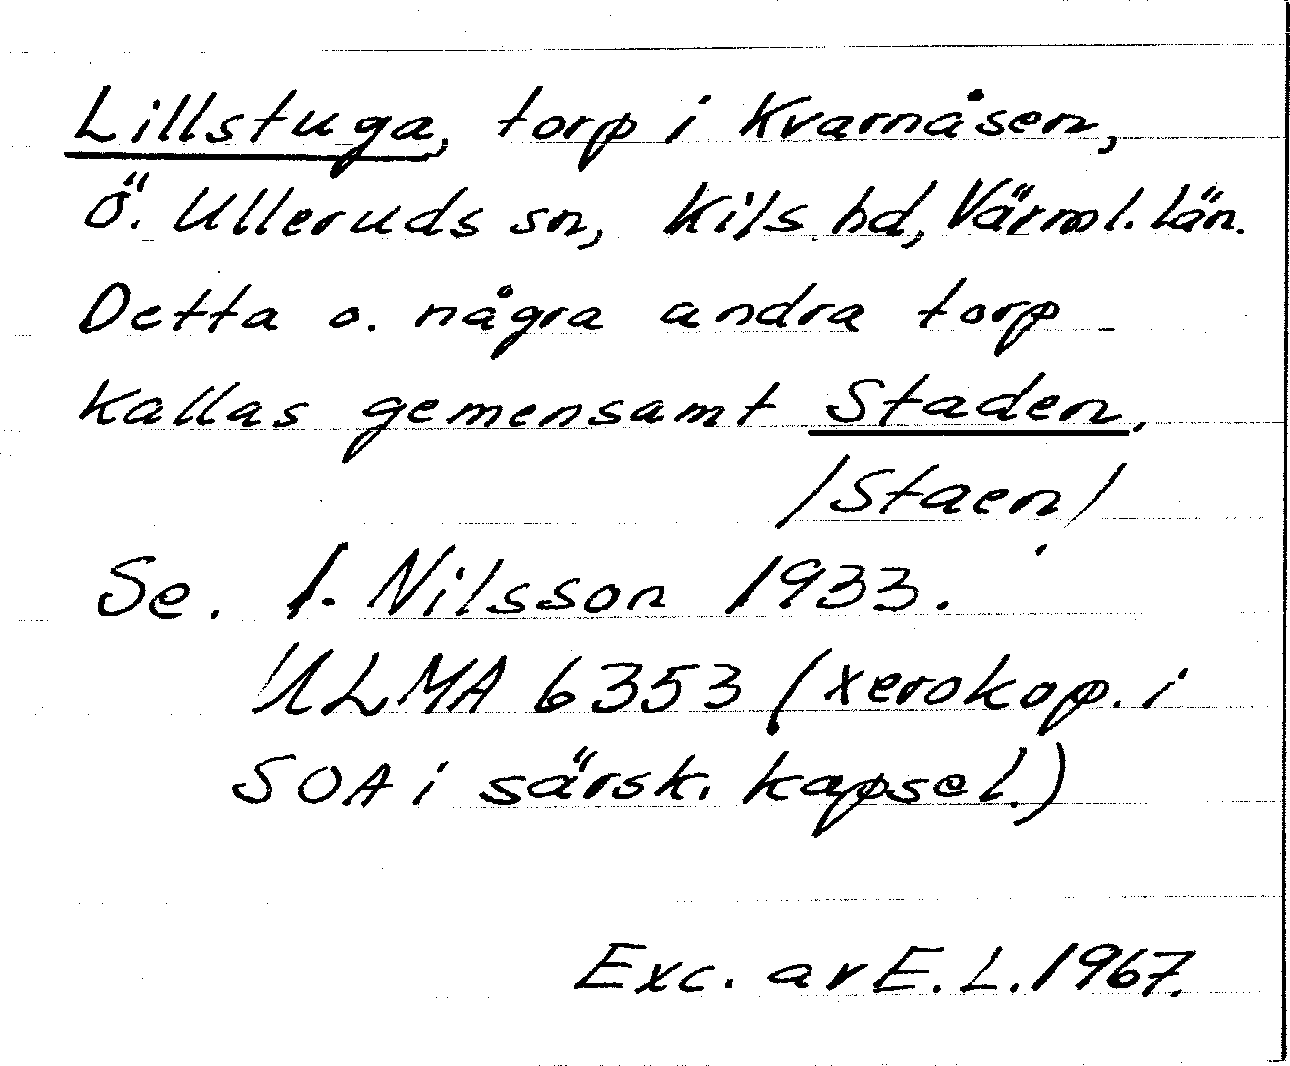 Lillstuga, torp i Kvarnåsen,
Ö. Ulleruds sn, Kils hd, Värml. Län.
Detta o. några andra torp
kallas gemensamt Staden.
/Staen/
Se. I. Nilsson 1933.
ULMA 6353 (xerokop. i
SOA i särsk. kapsel.)
Exc. av E. L. 1967.